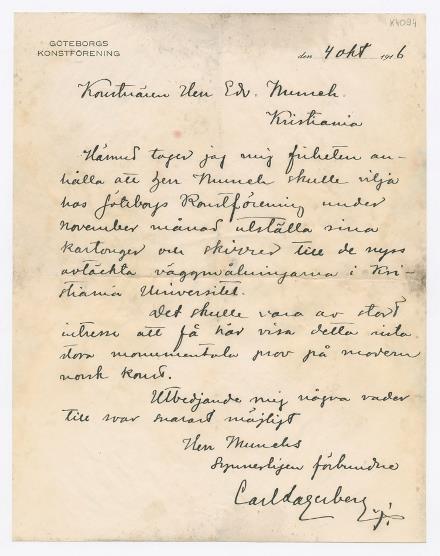 K4094
GÖTEBORGS
KONSTFÖRENING
den 4 okt 1916
Konstnären Herr Edv. Munch.
Kristiania
Härmed tager jag mig friheten an-
hålla att Herr Munch skulle vilja
hos Göteborgs Konstförening under
november månad utställa sina
kartonger och skisser till de nyss
avtäckta väggmålningarna i Kri-
stiania Universitet.
Det skulle vara av stort
intresse att få här visa detta
stora monumentala prov på modern
norsk konst.
Utbedjande mig några rader
till svar snarast möjligt
Herr Munchs
synnerligen förbundne
Carl Lagerberg